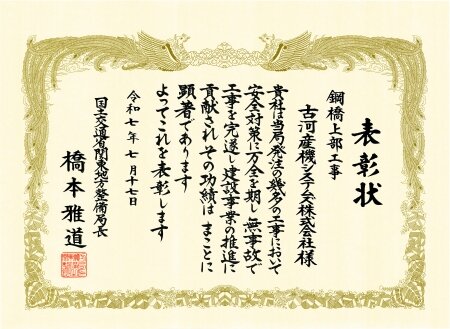 表彰状
鋼橋上部工事
古河産機システムズ株式会社様
貴社は当局発注の幾多の工事において
安全対策に万全を期し無事故で
工事を完遂し建設事業の推進に
貢献されその功績はまことに
顕著であります
よってこれを表彰します
令和七年七月十七日
国土交通省関東地方整備局長
橋本雅道